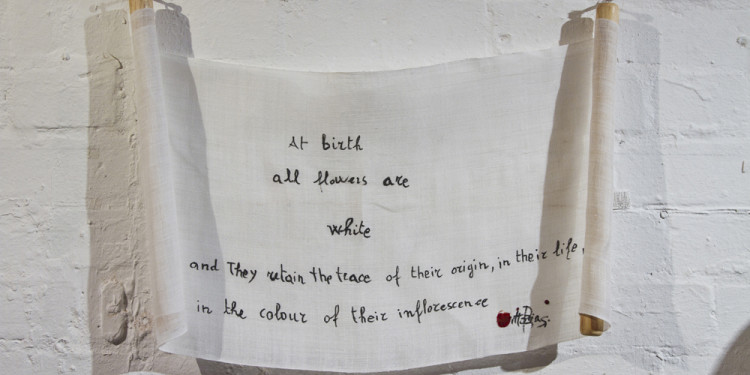 At birth
all flowers are
white
and They retain the trace of their origin, in their life,
in the colour of their inflorescence